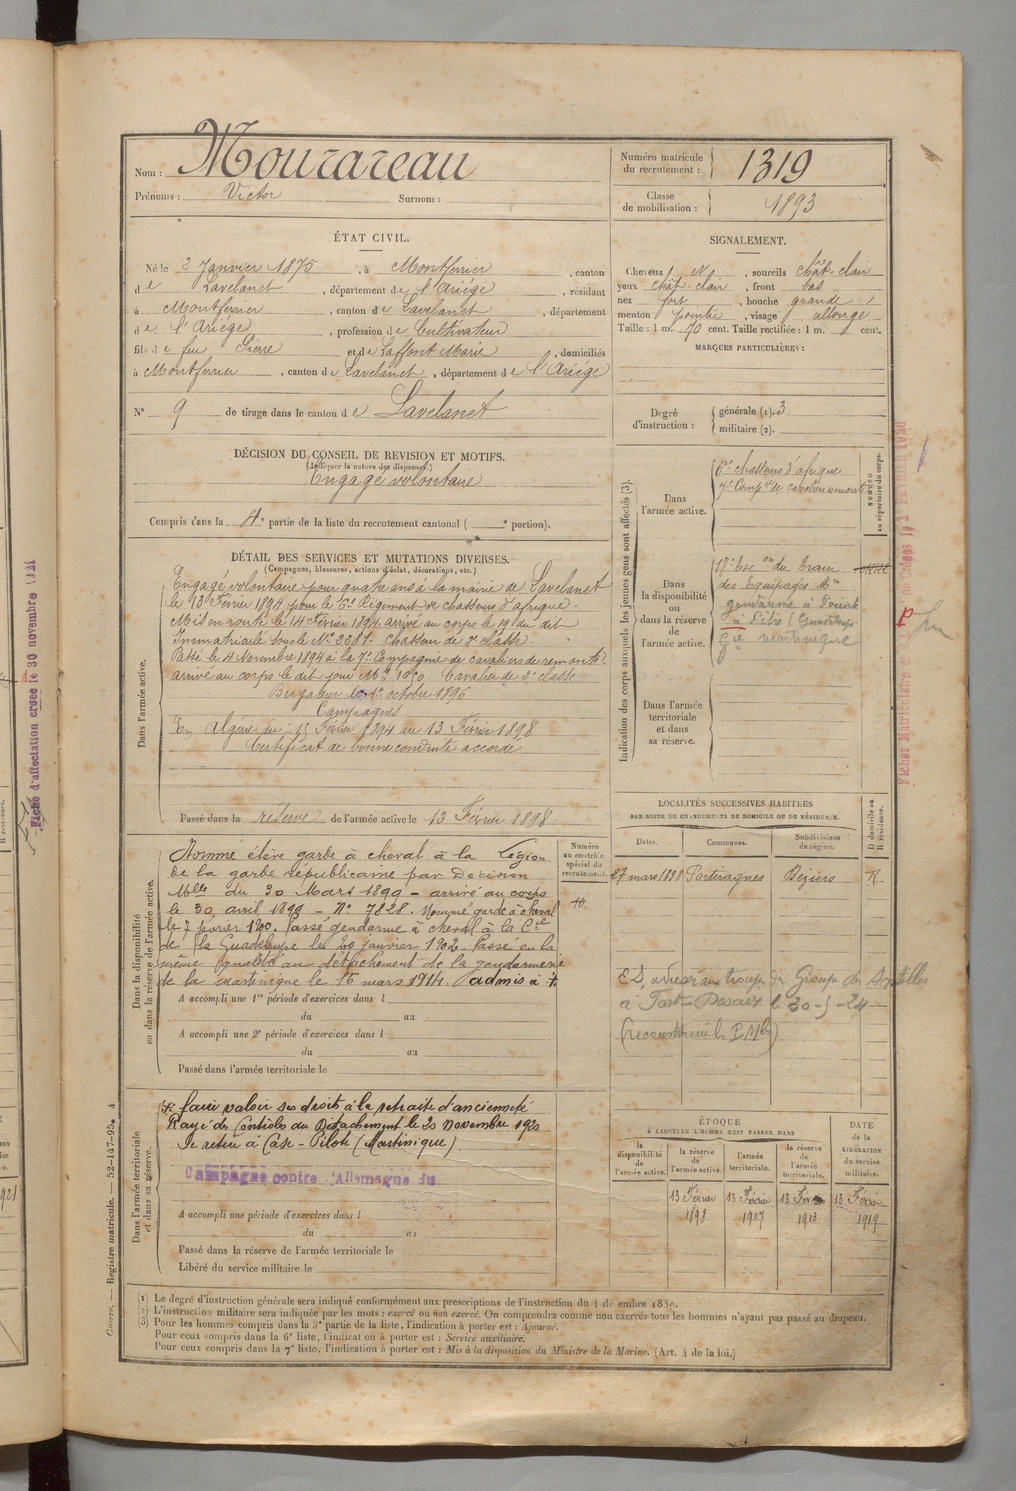 Nom : Mourareau
Prénoms : Victor Surnom :
Numéro matricule du recrutement : 1319
Classe de mobilisation : 1893
ÉTAT CIVIL.
Né le 2 Janvier 1875, à Montferrier, canton
de Lavelanet, département de l'Ariége, résidant
à Montferrier, canton de Lavelanet, département
de l'Ariége, profession de Cultivateur
fils de feu Pierre et de Laffont Marie, domiciliés
à Montferrier, canton de Lavelanet, département de l'Ariége
N° 9 de tirage dans le canton de Lavelanet
SIGNALEMENT.
Cheveux N, sourcils chât. clair
yeux chât. clair, front bas
nez fort, bouche grande
menton pointu, visage allongé
Taille : 1 m. 70 cent. Taille rectifiée : 1 m. cent.
MARQUES PARTICULIÈRES :
Degré d'instruction : générale (1). 3
militaire (2).
DÉCISION DU CONSEIL DE REVISION ET MOTIFS.
(Indiquer la nature des dispenses.)
Engagé volontaire
Compris dans la 4e partie de la liste du recrutement cantonal ( e portion).
DÉTAIL DES SERVICES ET MUTATIONS DIVERSES.
(Campagnes, blessures, actions d'éclat, décorations, etc.)
Dans l'armée active.
Engagé volontaire pour quatre ans à la mairie de Lavelanet
le 13 Février 1894 pour le 6e Régiment de chasseurs d'afrique.
Mis en route le 14 Février 1894 arrivé au corps le 19 du dit
Immatriculé sous le No 3381. Chasseur de 2e classe.
Passé le 4 Novembre 1894 à la 7e Compagnie de cavaliers de remonte
arrivé au corps le dit jour Cavalier de 2e classe
Brigadier le 1er octobre 1896
Campagnes
En Algérie du 15 Février 1894 au 13 Février 1898
Certificat de bonne conduite accordé
Passé dans la réserve de l'armée active le 13 Février 1898
Indication des corps auxquels les jeunes gens sont affectés (3).
Dans l'armée active.
6e chasseurs d'afrique
7e Compie de cavaliers remonte
NUMÉRO au répertoire du corps.
Dans la disponibilité ou dans la réserve de l'armée active.
17e Escon du Train
des Equipages Mres
gendarme à Pointe
à Pitre (Guadeloupe
Cie martinique
Dans l'armée territoriale et dans sa réserve.
LOCALITÉS SUCCESSIVES HABITÉES
PAR SUITE DE CHANGEMENTS DE DOMICILE OU DE RÉSIDENCE.
Dates. Communes. Subdivisions de région. D domicile ou R résidence.
27 mars 1898 Portiragnes Béziers R.
Dans la disponibilité ou dans la réserve de l'armée active.
Numéro au contrôle spécial du recrutement.
Nommé élève garde à cheval à la Légion
de la garde républicaine par Décision
Mlle du 30 Mars 1899 - arrivé au corps
le 30 avril 1899 - No 7828. Nommé garde à cheval
le 7 février 1900. Passé gendarme à cheval à la Cie
de la Guadeloupe le 20 janvier 1902. Passé en la
même qualité au détachement de la gendarmerie
de la martinique le 15 mars 1914. admis à
A accompli une 1re période d'exercices dans l
du au
A accompli une 2e période d'exercices dans l
du au
Passé dans l'armée territoriale le
aux troupes du Groupe des Antilles
à Fort-Desaix le 30-5-24
Dans l'armée territoriale et dans sa réserve.
faire valoir ses droits à la retraite d'ancienneté
Rayé des Contrôles du Détachement le 20 novembre 1920
Se retire à Case-Pilote (Martinique)
Campagne contre l'Allemagne du
A accompli une période d'exercices dans l
du au
Passé dans la réserve de l'armée territoriale le
Libéré du service militaire le
ÉPOQUE
À LAQUELLE L'HOMME DOIT PASSER DANS
la disponibilité de l'armée active. la réserve de l'armée active. l'armée territoriale. la réserve de l'armée territoriale. DATE de la LIBÉRATION du service militaire.
13 Février 1898 13 Février 1907 13 Février 1913 13 Février 1919
(1) Le degré d'instruction générale sera indiqué conformément aux prescriptions de l'instruction du 4 décembre 1889.
(2) L'instruction militaire sera indiquée par les mots : exercé ou non exercé. On comprendra comme non exercés tous les hommes n'ayant pas passé au drapeau.
(3) Pour les hommes compris dans la 5e partie de la liste, l'indication à porter est : Ajourné.
Pour ceux compris dans la 6e liste, l'indication à porter est : Service auxiliaire.
Pour ceux compris dans la 7e liste, l'indication à porter est : Mis à la disposition du Ministre de la Marine. (Art. 4 de la loi.)
Registre matricule. — 52-147-95. 4
Fiche d'affectation créée le 30 novembre 1921